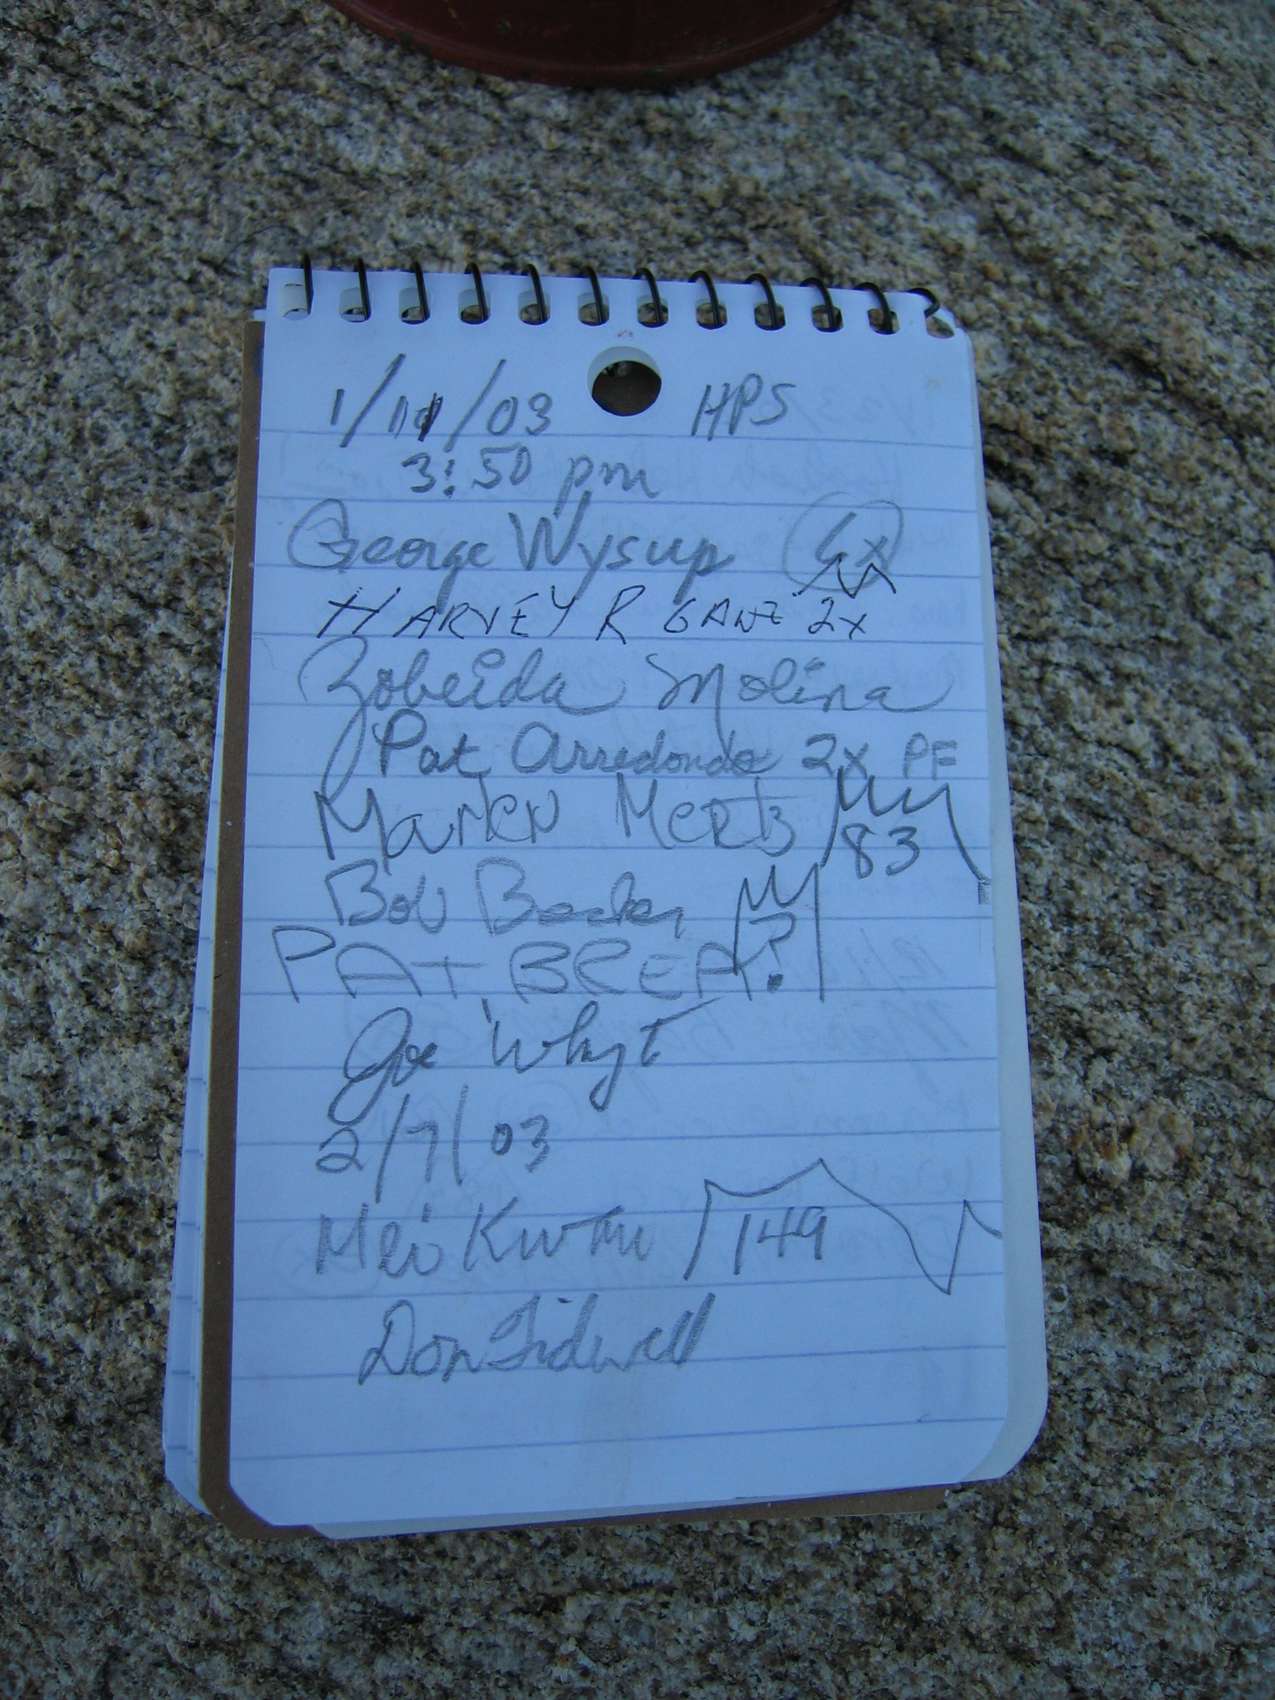 1/11/03 HPS
3:50 pm
George Wysup
HARVEY R GANZ 2x
Zobeida Molina
Pat Arredondo 2x PF
Mertz 83
Bob
PAT BREA ?
Joe Whyt
2/7/03
Mei Kwan 149
Don Tidwell